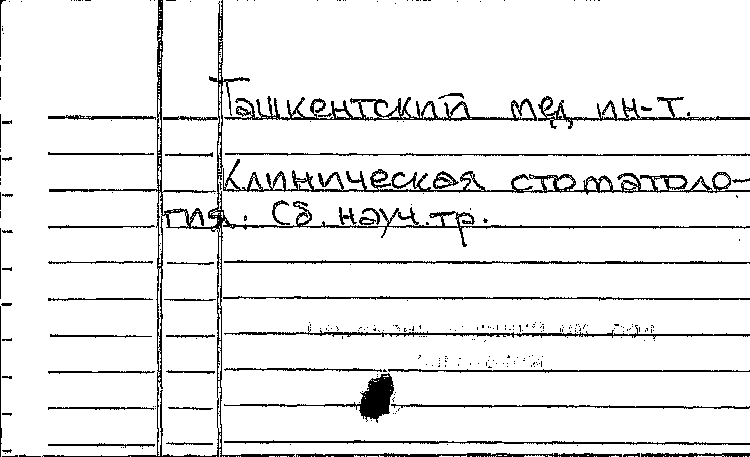 Ташкентский мед. ин-т.
Клиническая стоматоло-
гия. Сб. науч. тр.